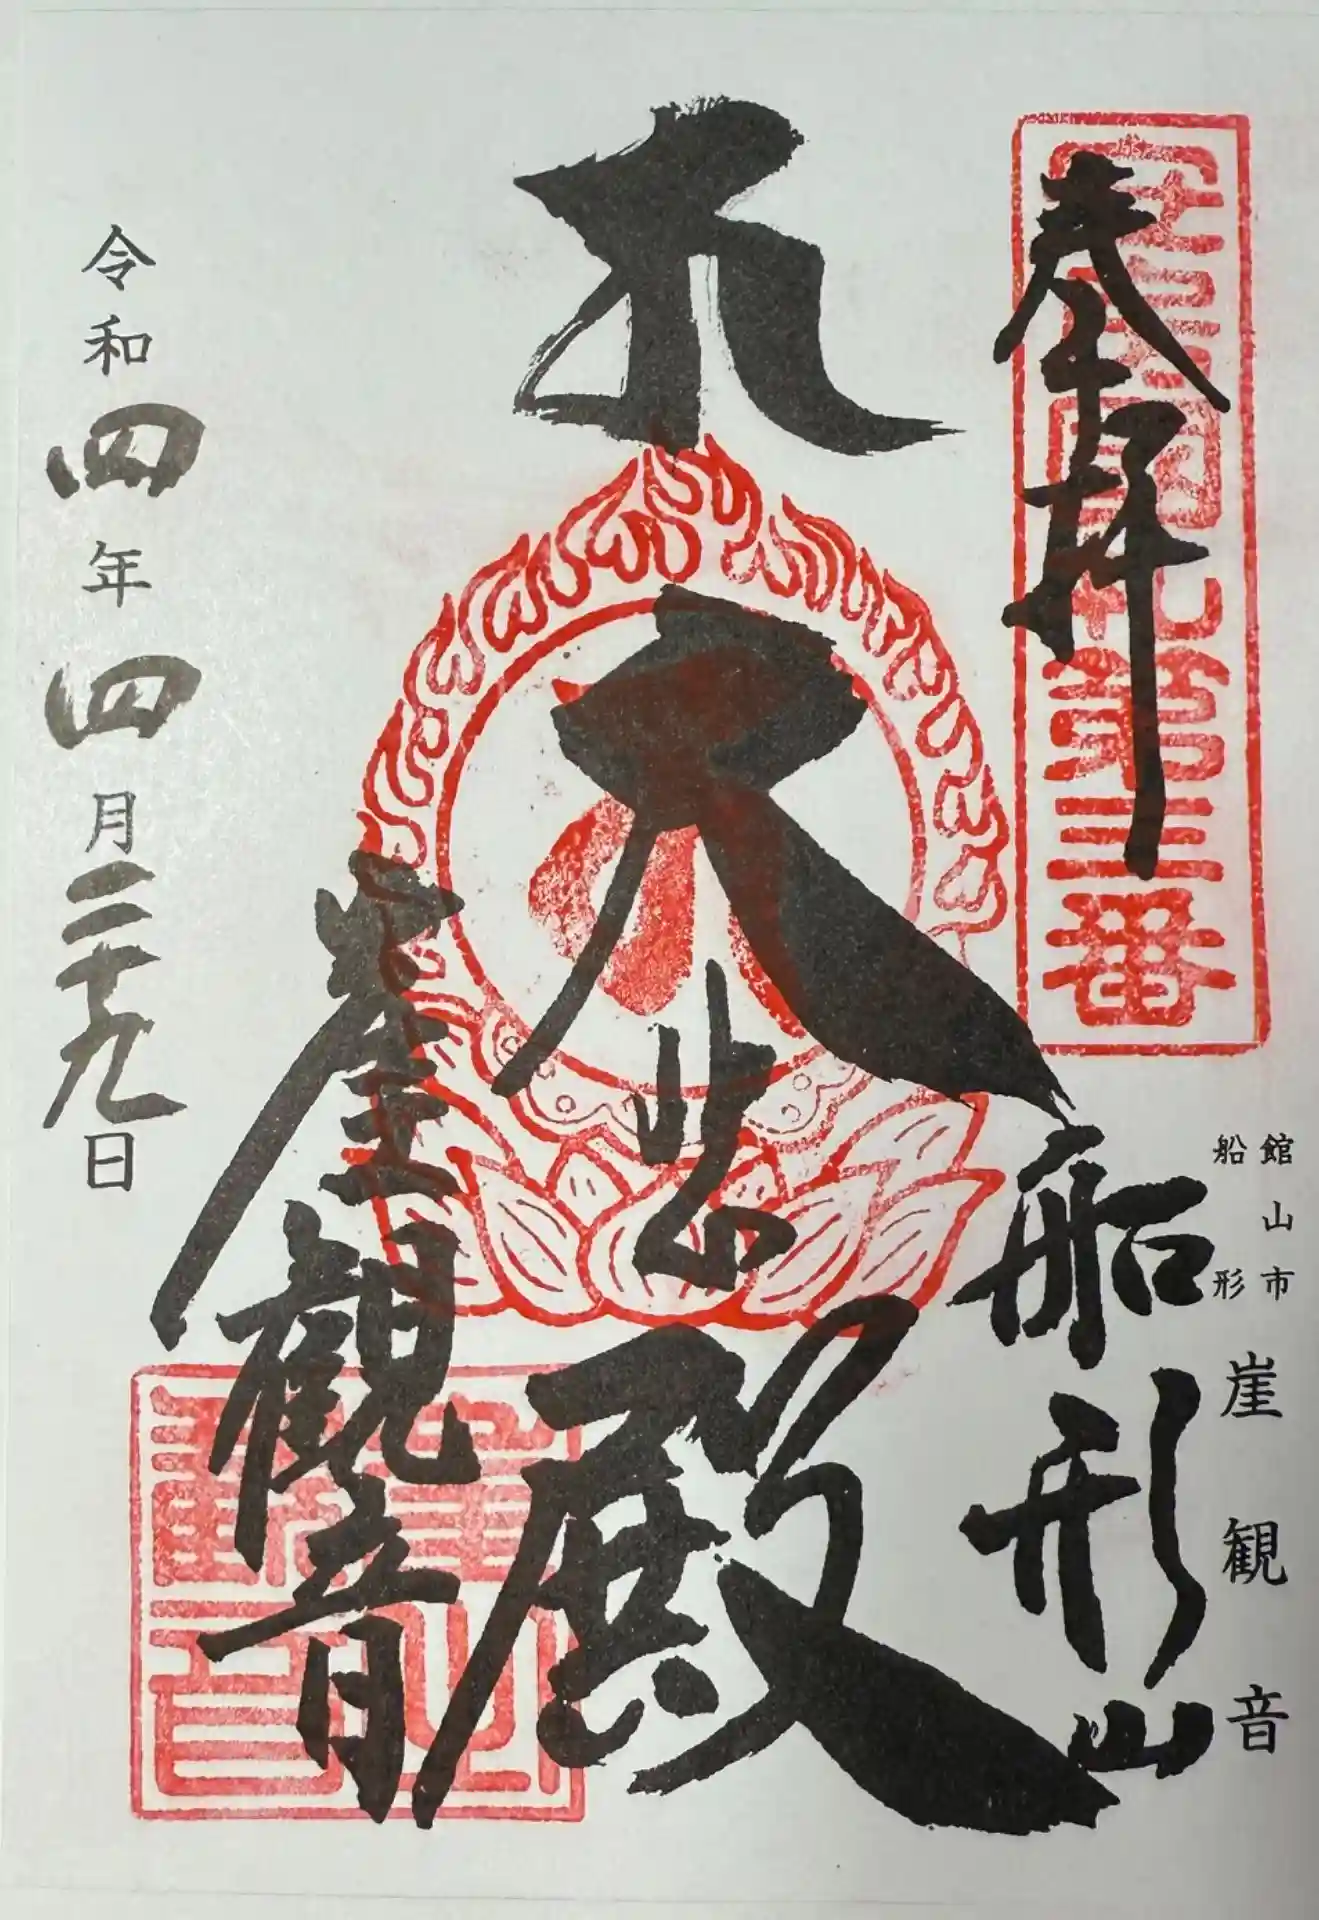 奉拝
安房国札第三番
館山市
船形
崖観音
船形山
大悲殿
崖観音
令和四年四月二十九日